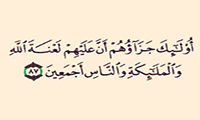 أُو۟لَـٰٓئِكَ جَزَآؤُهُمْ أَنَّ عَلَيْهِمْ لَعْنَةَ ٱللَّهِ
وَٱلْمَلَـٰٓئِكَةِ وَٱلنَّاسِ أَجْمَعِينَ ٨٧